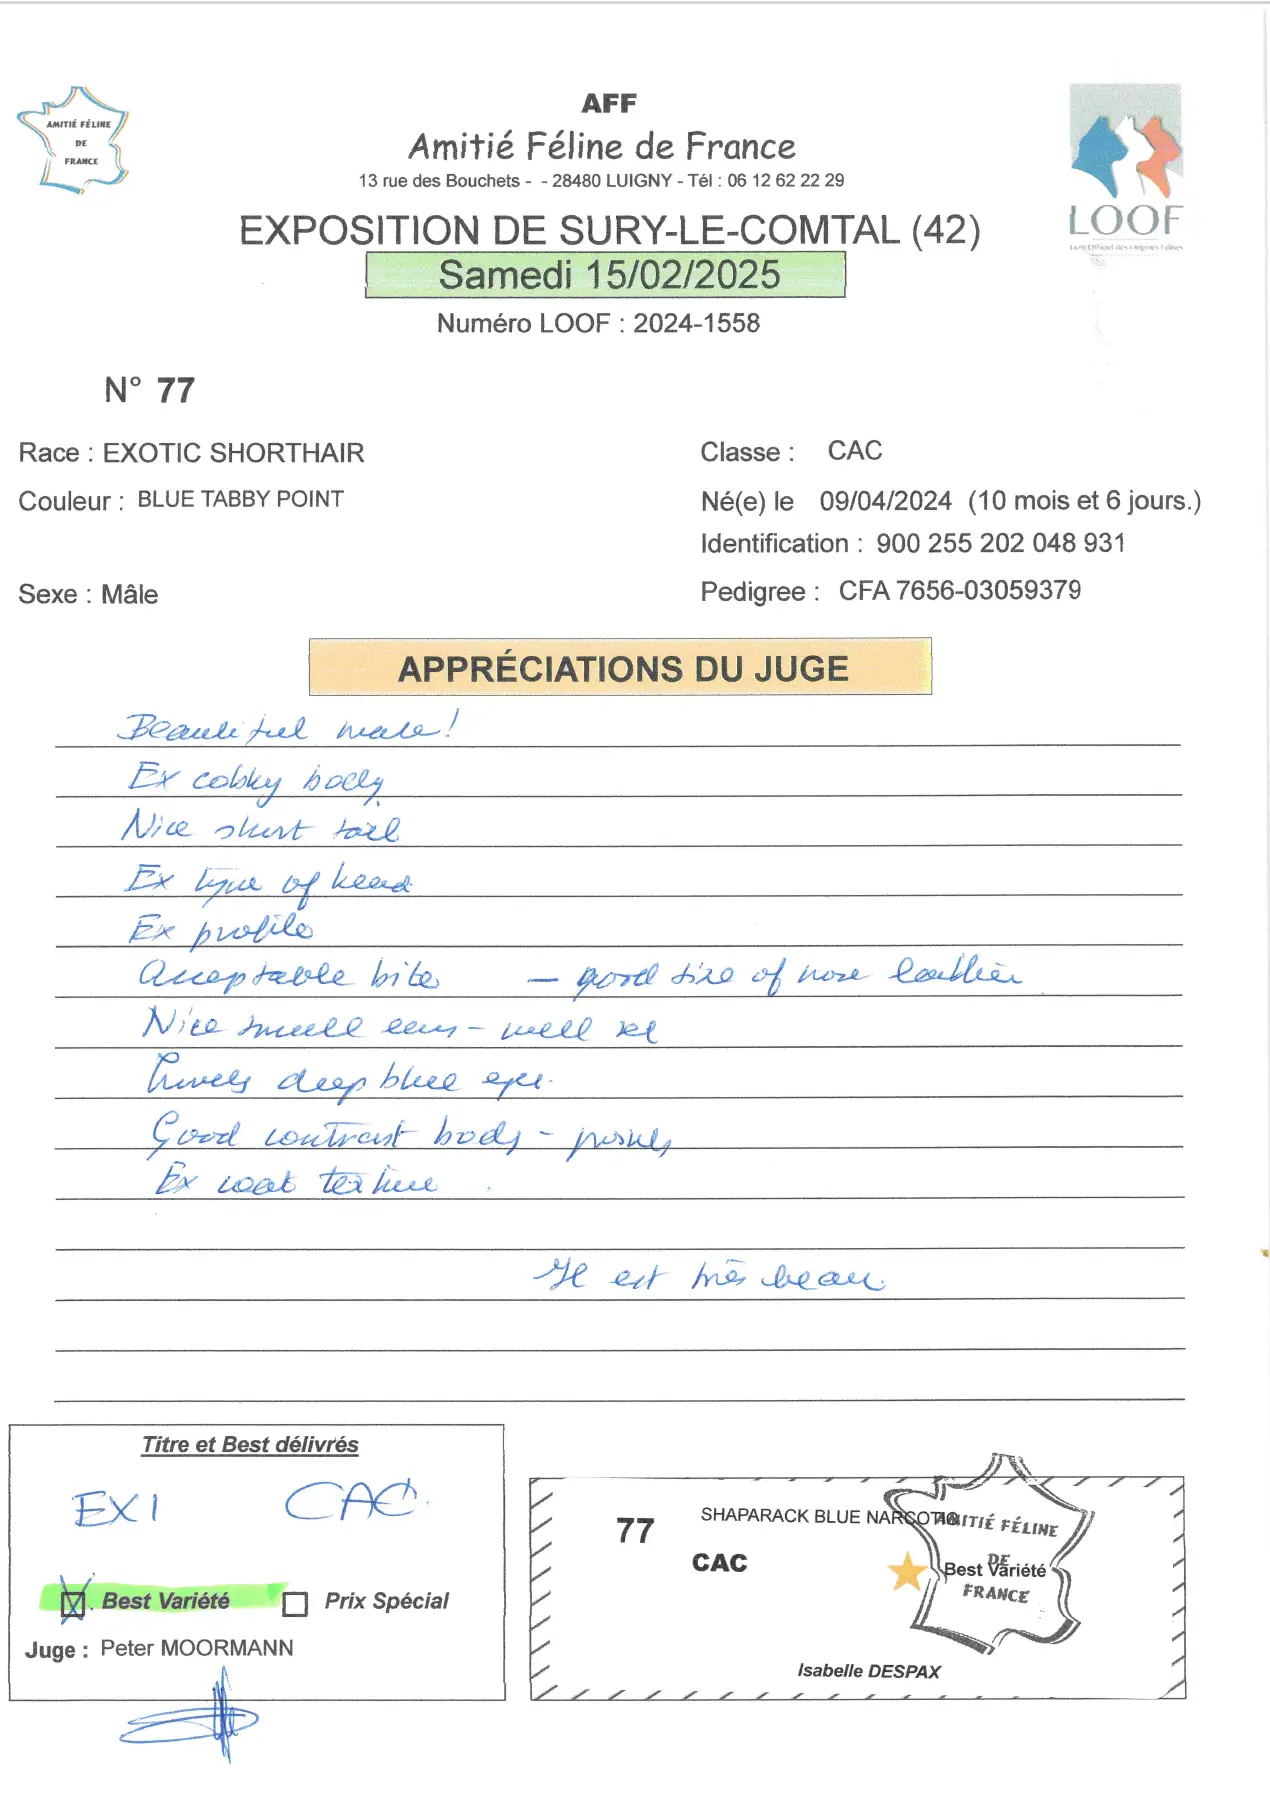 AMITIÉ FÉLINE
DE
FRANCE
AFF
Amitié Féline de France
13 rue des Bouchets - - 28480 LUIGNY - Tél : 06 12 62 22 29
LOOF
Livre Officiel des Origines Félines
EXPOSITION DE SURY-LE-COMTAL (42)
Samedi 15/02/2025
Numéro LOOF : 2024-1558
N° 77
Race : EXOTIC SHORTHAIR
Classe : CAC
Couleur : BLUE TABBY POINT
Né(e) le 09/04/2024 (10 mois et 6 jours.)
Identification : 900 255 202 048 931
Sexe : Mâle
Pedigree : CFA 7656-03059379
APPRÉCIATIONS DU JUGE
Beautiful male!
Ex cobby body
Nice short tail
Ex type of head
Ex profile
Acceptable bite - good size of nose leather
Nice small ears - well set
Lovely deep blue eyes.
Good contrast body - points
Ex coat texture.
Il est très beau.
Titre et Best délivrés
EX 1 CAC.
Best Variété Prix Spécial
Juge : Peter MOORMANN
77
SHAPARACK BLUE NARCOTIC
CAC
Best Variété
AMITIÉ FÉLINE
DE
FRANCE
Isabelle DESPAX